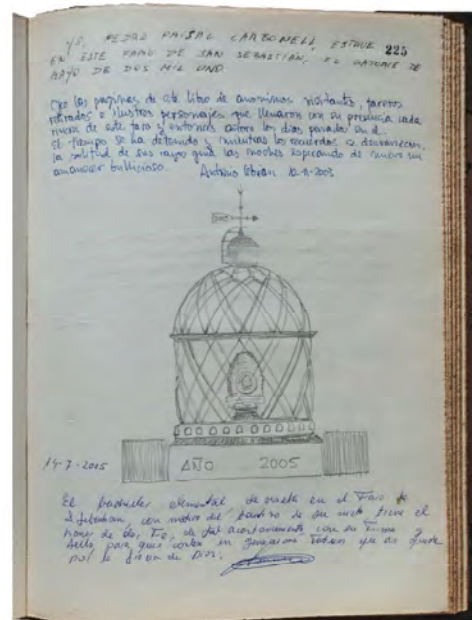 YO, PEDRO PAISAL CARBONELL, ESTUVE 225
EN ESTE FARO DE SAN SEBASTIAN, EL CATORCE DE
MAYO DE DOS MIL UNO.
Ojeo las paginas de este libro de anonimos visitantes, fareros
retirados e ilustres personajes que llenaron con su presencia cada
rincon de este faro y entonces añoro los dias pasados en el.
El tiempo se ha detenido y mientras los recuerdos se desvanecen,
la solitud de sus rayos guia las noches esperando de nuevo un
amanecer bullicioso. Antonio 12-11-2003
AÑO 2005
14-7-2005
El bachiller elemental de vuelta en el Faro de
S. Sebastian con motivo del bautizo de su nieto tiene el
honor de dar Fe, de tal acontecimiento con su Firma y
Sello para que conste en generaciones
por la gracia de Dios.